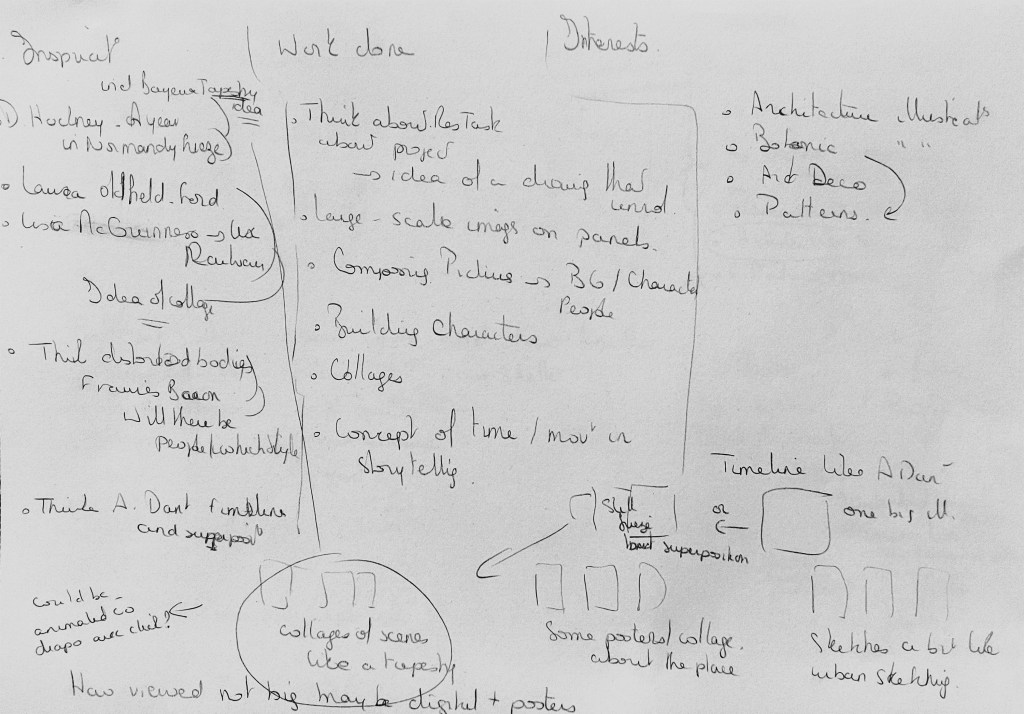 Inspirat°
Work done
Interests.
incl Bayeux Tapestry
idea
D. Hockney - A year
in Normandy frieze
• Laura Oldfield-Ford
• Lisa McGuinness →
Railway
Idea of collage
• Think distorted bodies
Francis Bacon
Will there be
people/which style
• Think A. Dant timeline
and
• Think about Res Task
about project
→ idea of a drawing that
unrol.
• Large-scale images on panels.
• Composing Pictures → BG / Character
People
• Building Characters
• Collages
• Concept of time / mov° in
storytelling.
• Architecture illustrat°
• Botanic " "
• Art Deco
• Patterns.
Timeline like A Dant
still
frieze
but superposition
or
one big ill.
could be
animated
diapo avec
collages of scenes
like a tapestry
Some posters/collage.
about the place
Sketches a bit like
urban sketching.
How viewed not big may be digital + posters